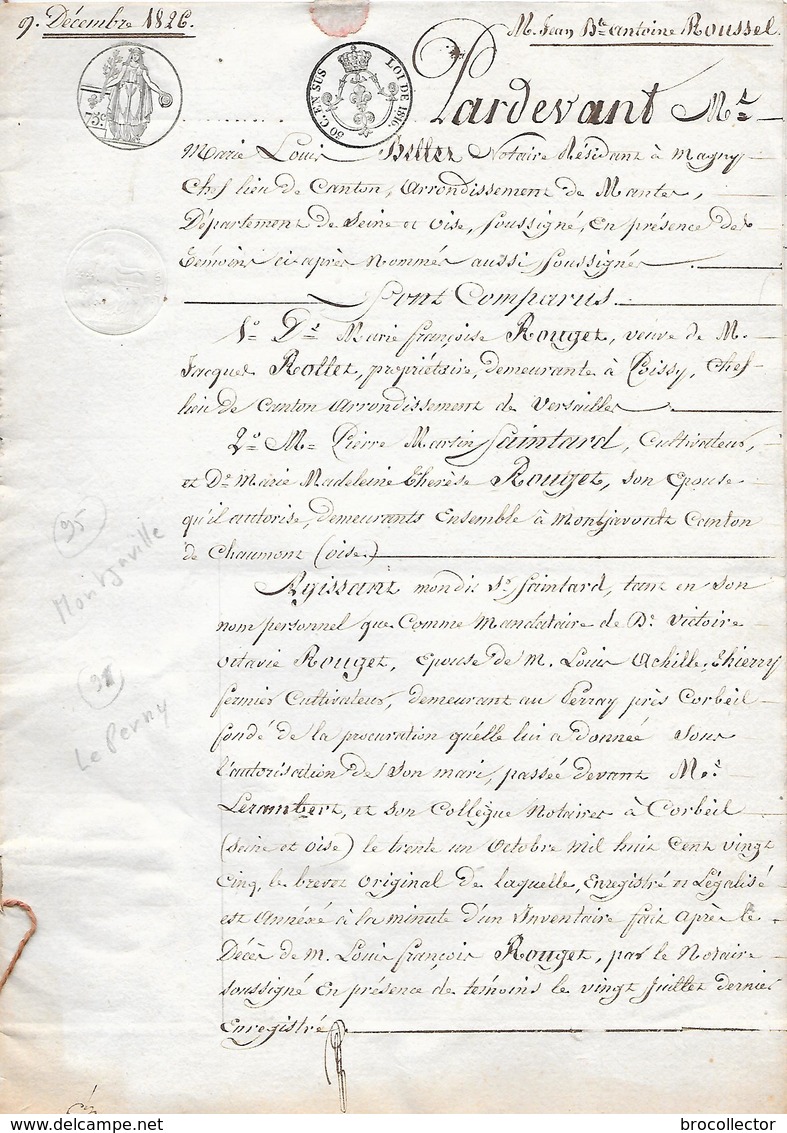 9. Décembre 1826.
M. Jean Bte antoine Roussel.
75c
50 C. EN SUS
LOI DE 1816.
Pardevant Me
Marie Louis Billet Notaire Résidant à Magny
Chef lieu de Canton, Arrondissement de Mantes,
Département de Seine et Oise, soussigné, En présence des
témoins ci après Nommés aussi soussignés.
Sont Comparus.
1o De Marie françoise Rouget, veuve de M.
Jacques Rollet, propriétaire, demeurante à Poissy, Chef
lieu de Canton Arrondissement de Versailles
2o M. Pierre Martin Saintard, Cultivateur,
et De Marie Madeleine Thérèse Rouget, son Epouse
qu'il autorise, demeurants Ensemble à Montjavoult Canton
de Chaumont (oise.)
95
Montjaville
Agissant mondit Sr. Saintard, tant en son
nom personnel que Comme Mandataire de De. Victoire
octavie Rouget, Epouse de M. Louis Achille Thierry
fermier Cultivateur, demeurant au Perray près Corbeil
91
Le Perray
fondé de la procuration qu'elle lui a donnée Sous
l'autorisation de Son mari, passée devant Me.
Lerambert, et son Collègue Notaires à Corbeil
(Seine et oise) le trente un Octobre Mil huit Cent vingt
Cinq, le brevet Original de laquelle, Enregistré et Légalisé
est Annéxé à la minute d'un Inventaire fait après le
Décès de M. Louis françois Rouget, par le Notaire
soussigné En présence de témoins le vingt Juillet dernier
Enregistré.
delcampe.net
brocollector